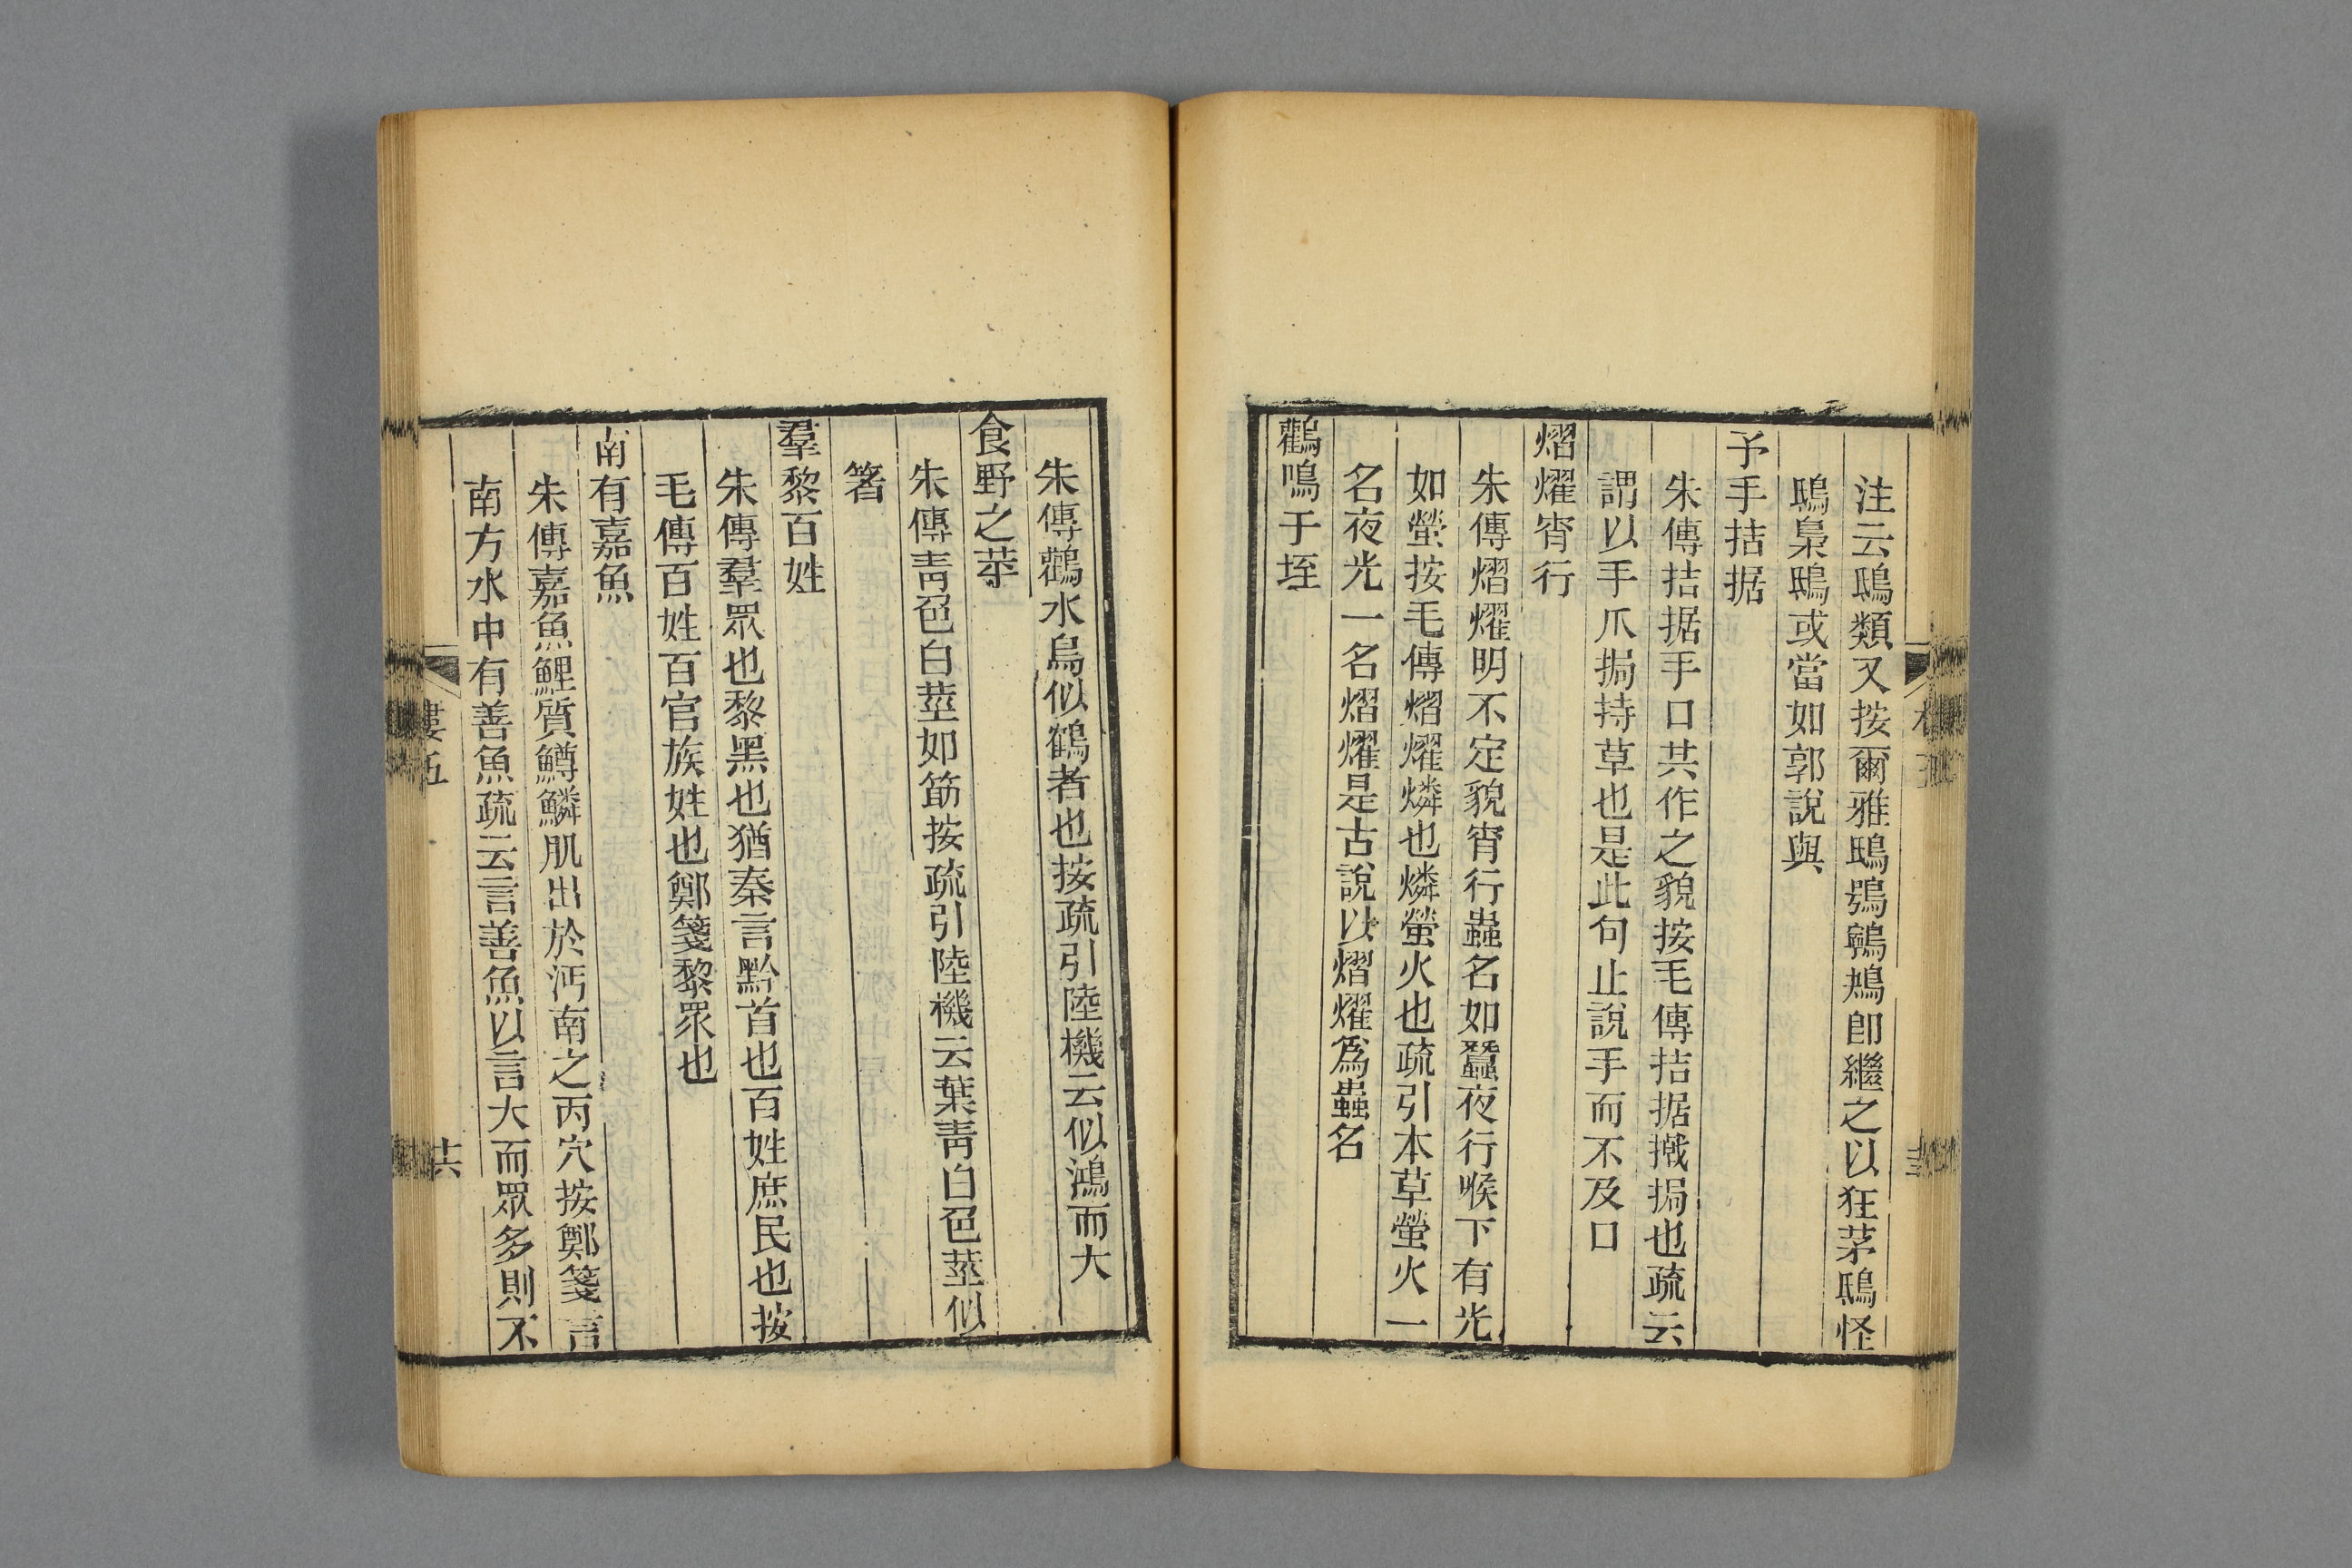 注云鴟類又按爾雅鴟鴞鸋鴂卽繼之以狂茅鴟怪
鴟梟鴟或當如郭說與
予手拮据
朱傳拮据手口共作之貌按毛傳拮据撠挶也疏云
謂以手爪挶持草也是此句止說手而不及口
熠燿宵行
朱傳熠燿明不定貌宵行蟲名如蠶夜行喉下有光
如螢按毛傳熠燿燐也燐螢火也疏引本草螢火一
名夜光一名熠燿是古說以熠燿爲蟲名
鸛鳴于垤
朱傳鸛水鳥似鶴者也按疏引陸機云似鴻而大
食野之苹
朱傳靑色白莖如筯按疏引陸機云葉靑白色莖似
箸
羣黎百姓
朱傳羣眾也黎黑也猶秦言黔首也百姓庶民也按
毛傳百姓百官族姓也鄭箋黎眾也
南有嘉魚
朱傳嘉魚鯉質鱒鱗肌出於沔南之丙穴按鄭箋言
南方水中有善魚疏云言善魚以言大而眾多則不
五
十六